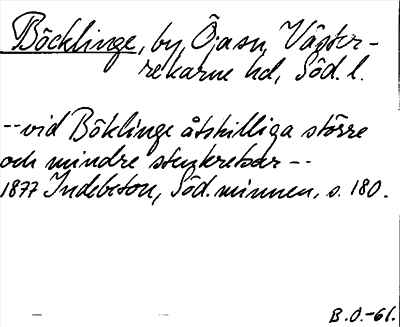 Böcklinge, by, Öja sn, Väster-
rekarne hd, Söd. l.
--vid Böklinge åtskilliga större
och mindre stenkretsar --
1877 Indebetou, Söd. minnen, s. 180.
B.O.-61.